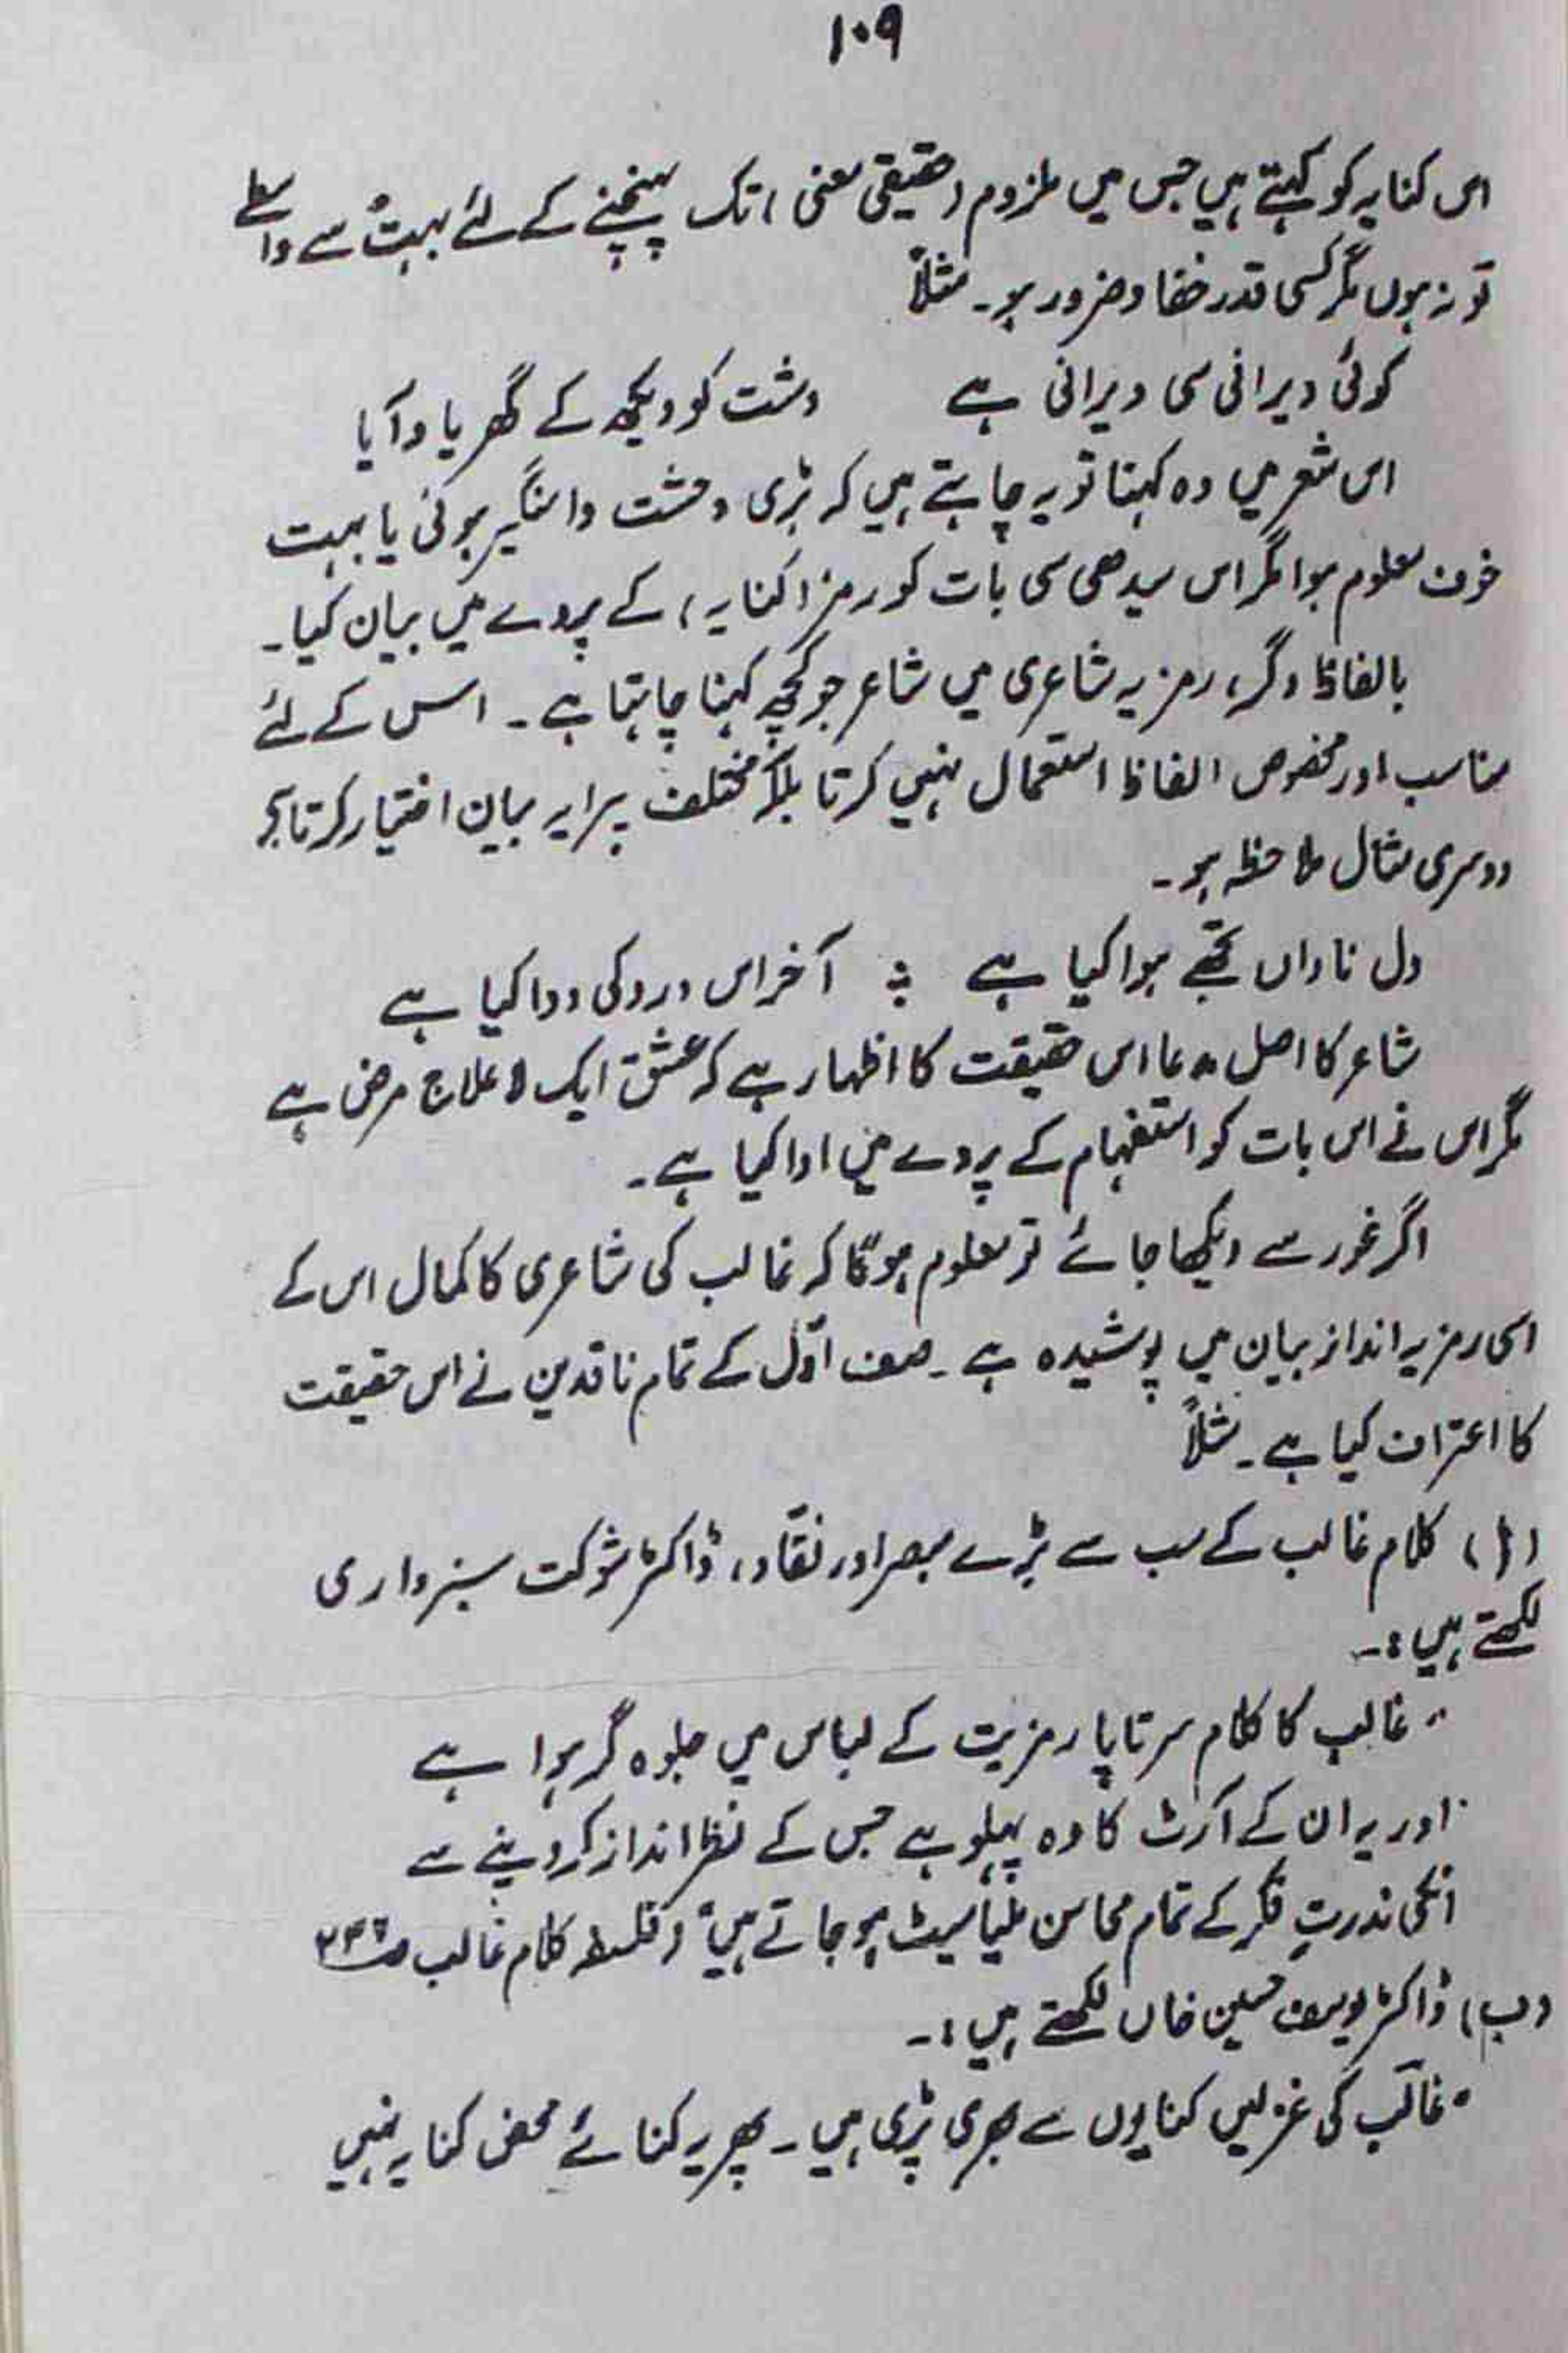 ۱۰۹
اس کنایہ کو کہتے ہیں جس میں ملزوم (حقیقی معنی) تک پہنچنے کے لئے بہت سے واسطے
تو نہ ہوں مگر کسی قدر خفا ضرور ہو۔ مثلاً
کوئی ویرانی سی ویرانی ہے دشت کو دیکھ کے گھر یاد آیا
اس شعر میں وہ کہنا تو یہ چاہتے ہیں کہ بڑی وحشت دامنگیر ہوئی یا بہت
خوف معلوم ہوا مگر اس سیدھی سی بات کو رمز (کنایہ) کے پردے میں بیان کیا۔
بالفاظ دگر، رمزیہ شاعری میں شاعر جو کچھ کہنا چاہتا ہے۔ اس کے لئے
مناسب اور مخصوص الفاظ استعمال نہیں کرتا بلکہ مختلف پیرایہ بیان اختیار کرتا ہے
دوسری مثال ملاحظہ ہو۔
دل ناداں تجھے ہوا کیا ہے ؛ آخر اس درد کی دوا کیا ہے
شاعر کا اصل مدعا اس حقیقت کا اظہار ہے کہ عشق ایک لا علاج مرض ہے
مگر اس نے اس بات کو استفہام کے پردے میں ادا کیا ہے۔
اگر غور سے دیکھا جائے تو معلوم ہوگا کہ غالب کی شاعری کا کمال اس کے
اسی رمزیہ انداز بیان میں پوشیدہ ہے۔ صف اوّل کے تمام ناقدین نے اس حقیقت
کا اعتراف کیا ہے۔ مثلاً
(ا) کلام غالب کے سب سے بڑے مبصر اور نقّاد، ڈاکٹر شوکت سبزواری
لکھتے ہیں:۔
"غالب کا کلام سرتاپا رمزیت کے لباس میں جلوہ گر ہوا ہے
اور یہ ان کے آرٹ کا وہ پہلو ہے جس کے نظر انداز کر دینے سے
انکی ندرتِ فکر کے تمام محاسن ملیا میٹ ہو جاتے ہیں" (فلسفہ کلام غالب
(ب) ڈاکٹر یوسف حسین خاں لکھتے ہیں:۔
"غالب کی غزلیں کنایوں سے بھری پڑی ہیں۔ پھر یہ کنائے محض کنایہ نہیں